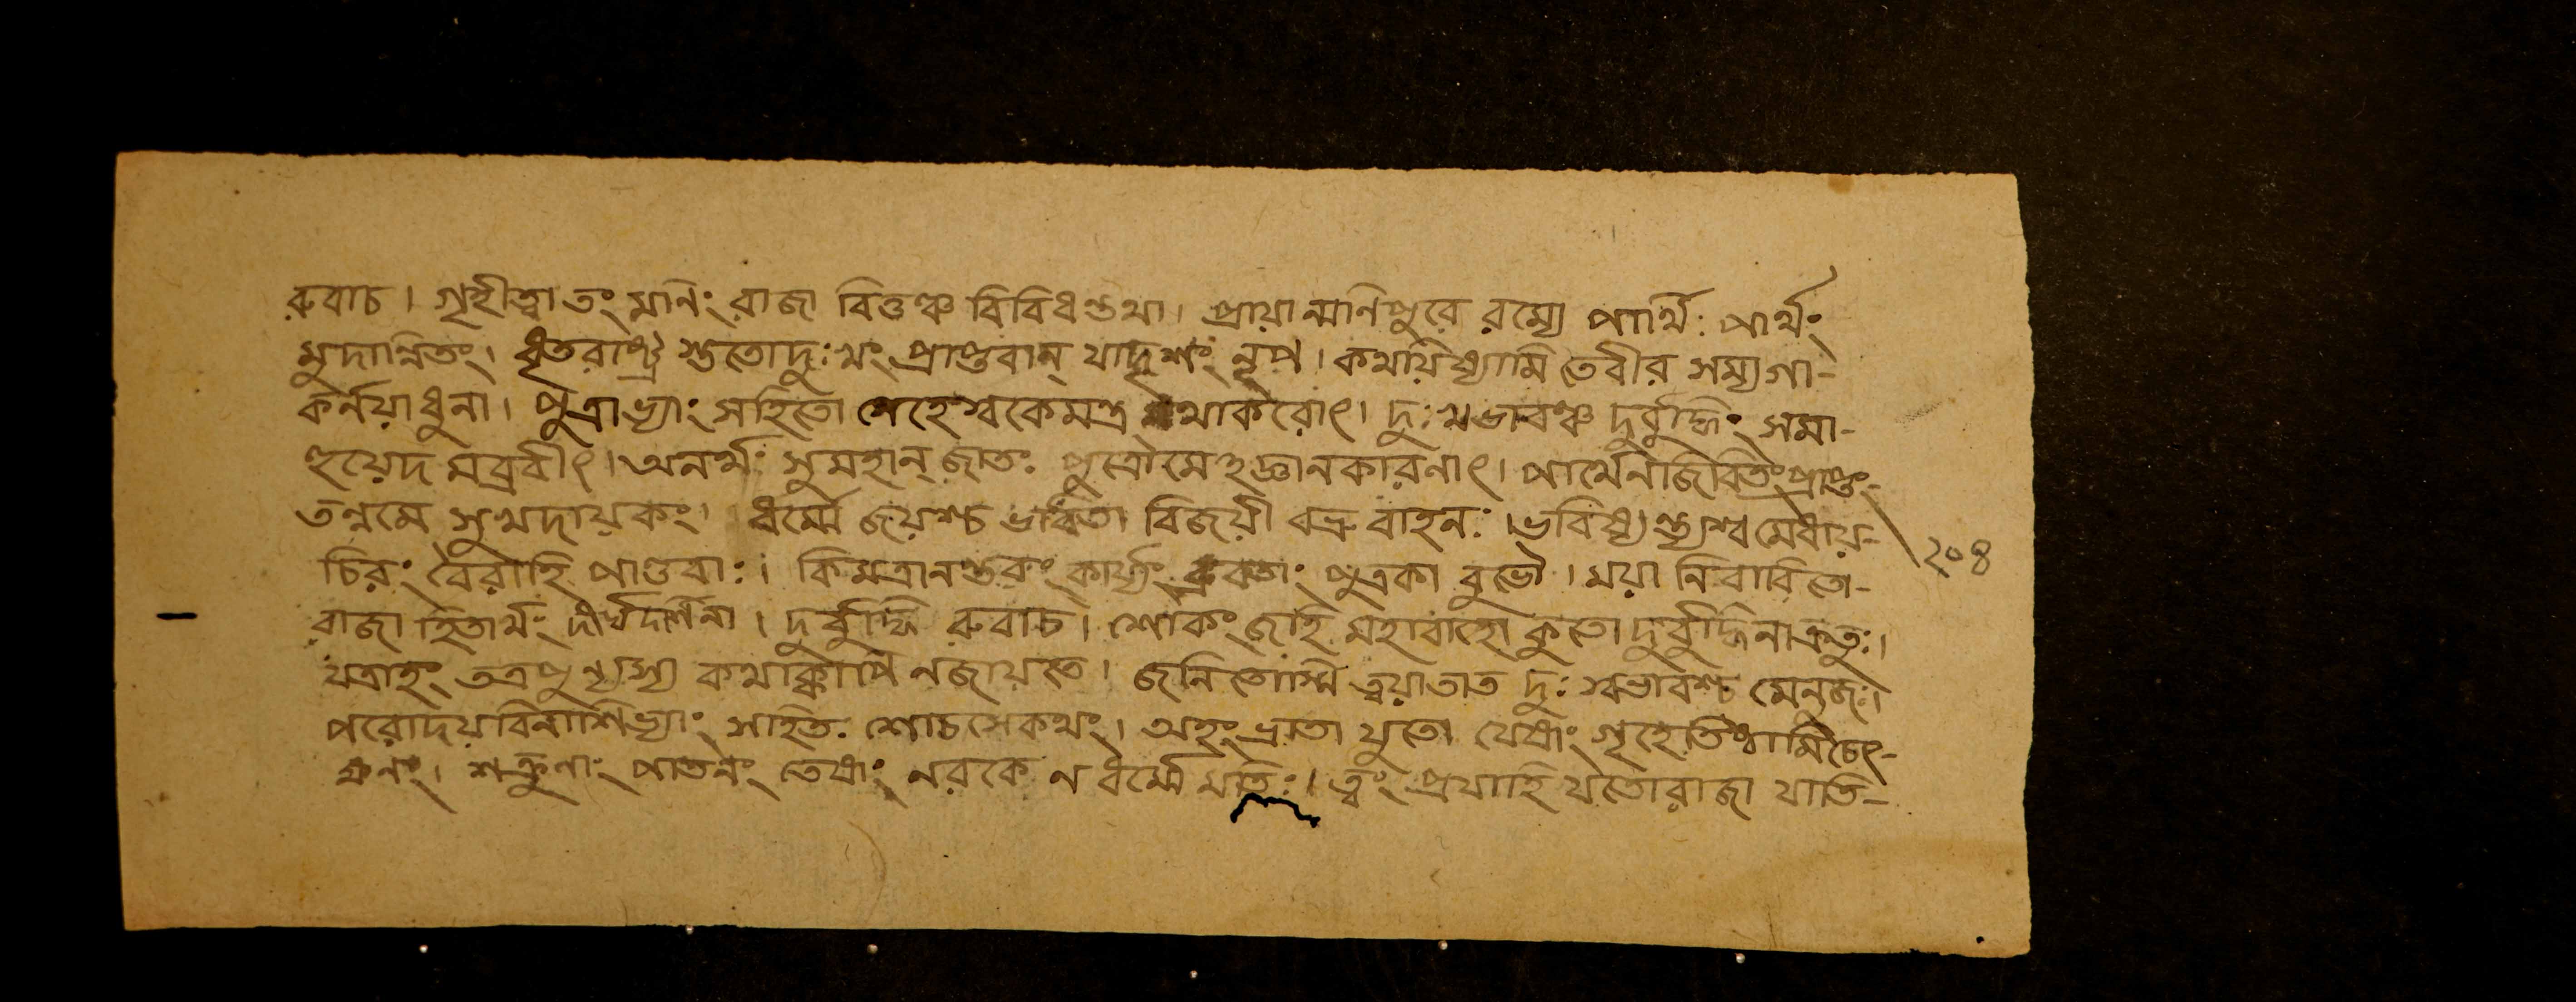 রুবাচ। গৃহীত্বা তং মনিং রাজা বিত্তঞ্চ বিবিধন্তথা। প্রাযান্মনিপুরে রম্যে পার্থিঃ পার্থং
মুদান্নিতং। ধৃতরাষ্ট্র শুতোদুঃখং প্রাপ্তবান্ যাদৃশং নৃপ। কথযিষ্যামি তেবীর সম্যগা-
কর্নযাধুনা। পুত্রাভ্যাং সহিতো গেহেস্বকেমন্ত্র মথাকরোৎ। দুঃখভাবঞ্চ দুর্বুদ্ধিং সমা-
হুযেদ মব্রবীৎ। অনর্থঃ সুমহান্ জাতঃ পুত্রৌমেঽজ্ঞানকারনাৎ। পার্থেনজিবিতংপ্রাপ্তং-
তন্নমে সুখদায়কং। ধর্ম্মে জয়শ্চ ভবিতা বিজয়ী বভ্রুবাহনঃ। ভবিষ্যন্ত্যশ্বমেধায়-
চিরং বৈরাহি পাণ্ডবাঃ। কিমত্রানন্তরং কার্য্যং ব্রুবতাং পুত্রকা বুভৌ। ময়া নিবারিতো-
রাজা হিতার্থং দীর্ঘদর্শিনা। দুর্বুদ্ধি রুবাচ। শোকং জহি মহাবাহো কুতো দুর্বুদ্ধিনাক্রতুঃ।
যত্রাহং তত্রপুন্যস্য কথাক্কাপি নজায়তে। জনিতোস্মি ত্বয়াতাত দুঃস্বভাবশ্চ মেনুজঃ।
পরোদয়বিনাশিভ্যাং সহিতঃ শোচসেকথং। অহং ভ্রাতা যুতো যেষাং গৃহেতিষ্ঠামিচেৎ-
ক্ষনং। শত্রুণাং পাতনং তেষাং নরকে ন ধর্ম্মে মতিঃ। ত্বং প্রযাহি যতোরাজা যাতি-
২০৪